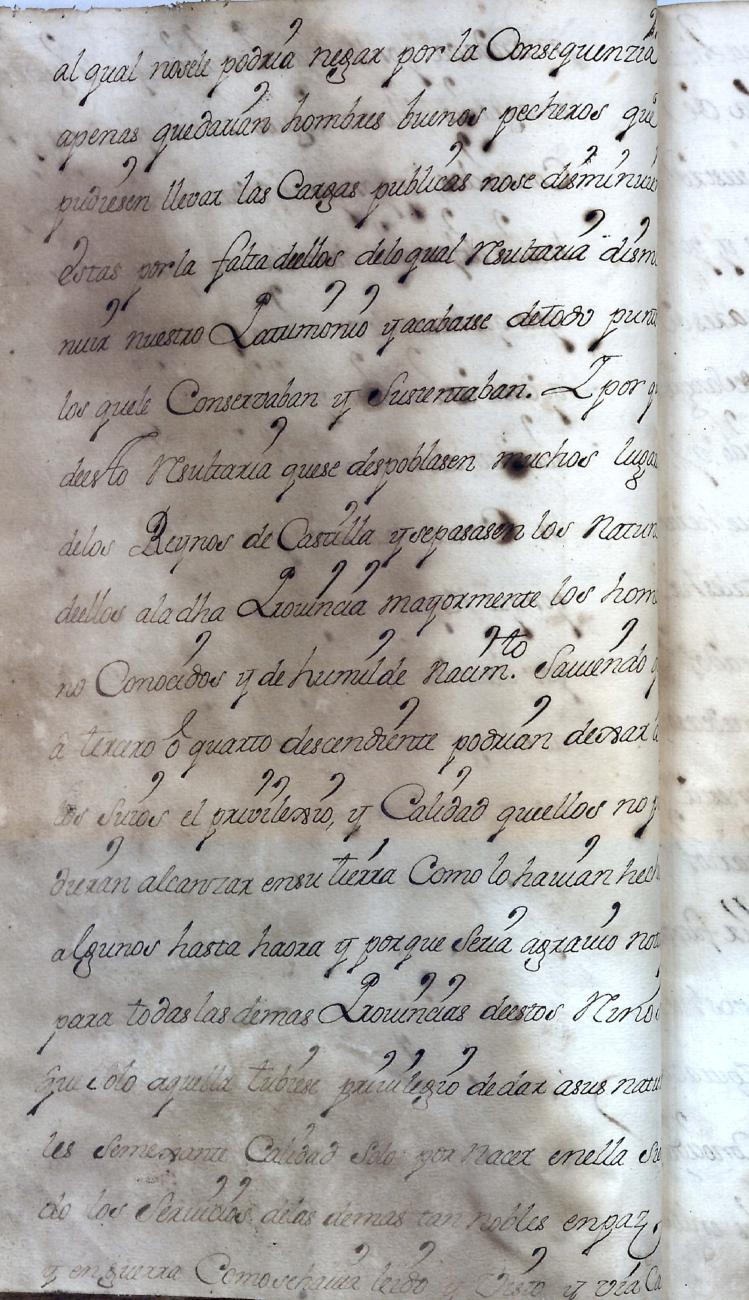 al qual nosele podria negar por la Consequenzia
apenas quedarian hombres buenos pecheros que
pudiesen llevar las Cargas publicas nose disminuie
estas por la falta deellos delo qual Resultaria dism
nuir nuestro Patrimonio y acabarse detodo punt
los quele Conservaban y Sustentaban. Y por q
deesto Resultaria quese despoblasen muchos luga
delos Reynos de Castilla y sepasasen los Natur
deellos ala dha Provincia mayormente los hom
no Conocidos y de humilde Nacim.to Saviendo q
a tercero o quarto descendiente podrian dexar
los Suios el privilexio, y Calidad queellos no p
dieran alcanzar ensu tierra Como lo havian hech
algunos hasta haora y porque Seria agravio not
para todas las demas Provincias deestos Rnos
que solo aquella tubiese privilegio de dar asus natu
les Semexante Calidad Solo por Nacer enella Si
do los Servicios delas demas tan nobles en paz,
y en guerra Como se havia leido y Visto y vra Ca